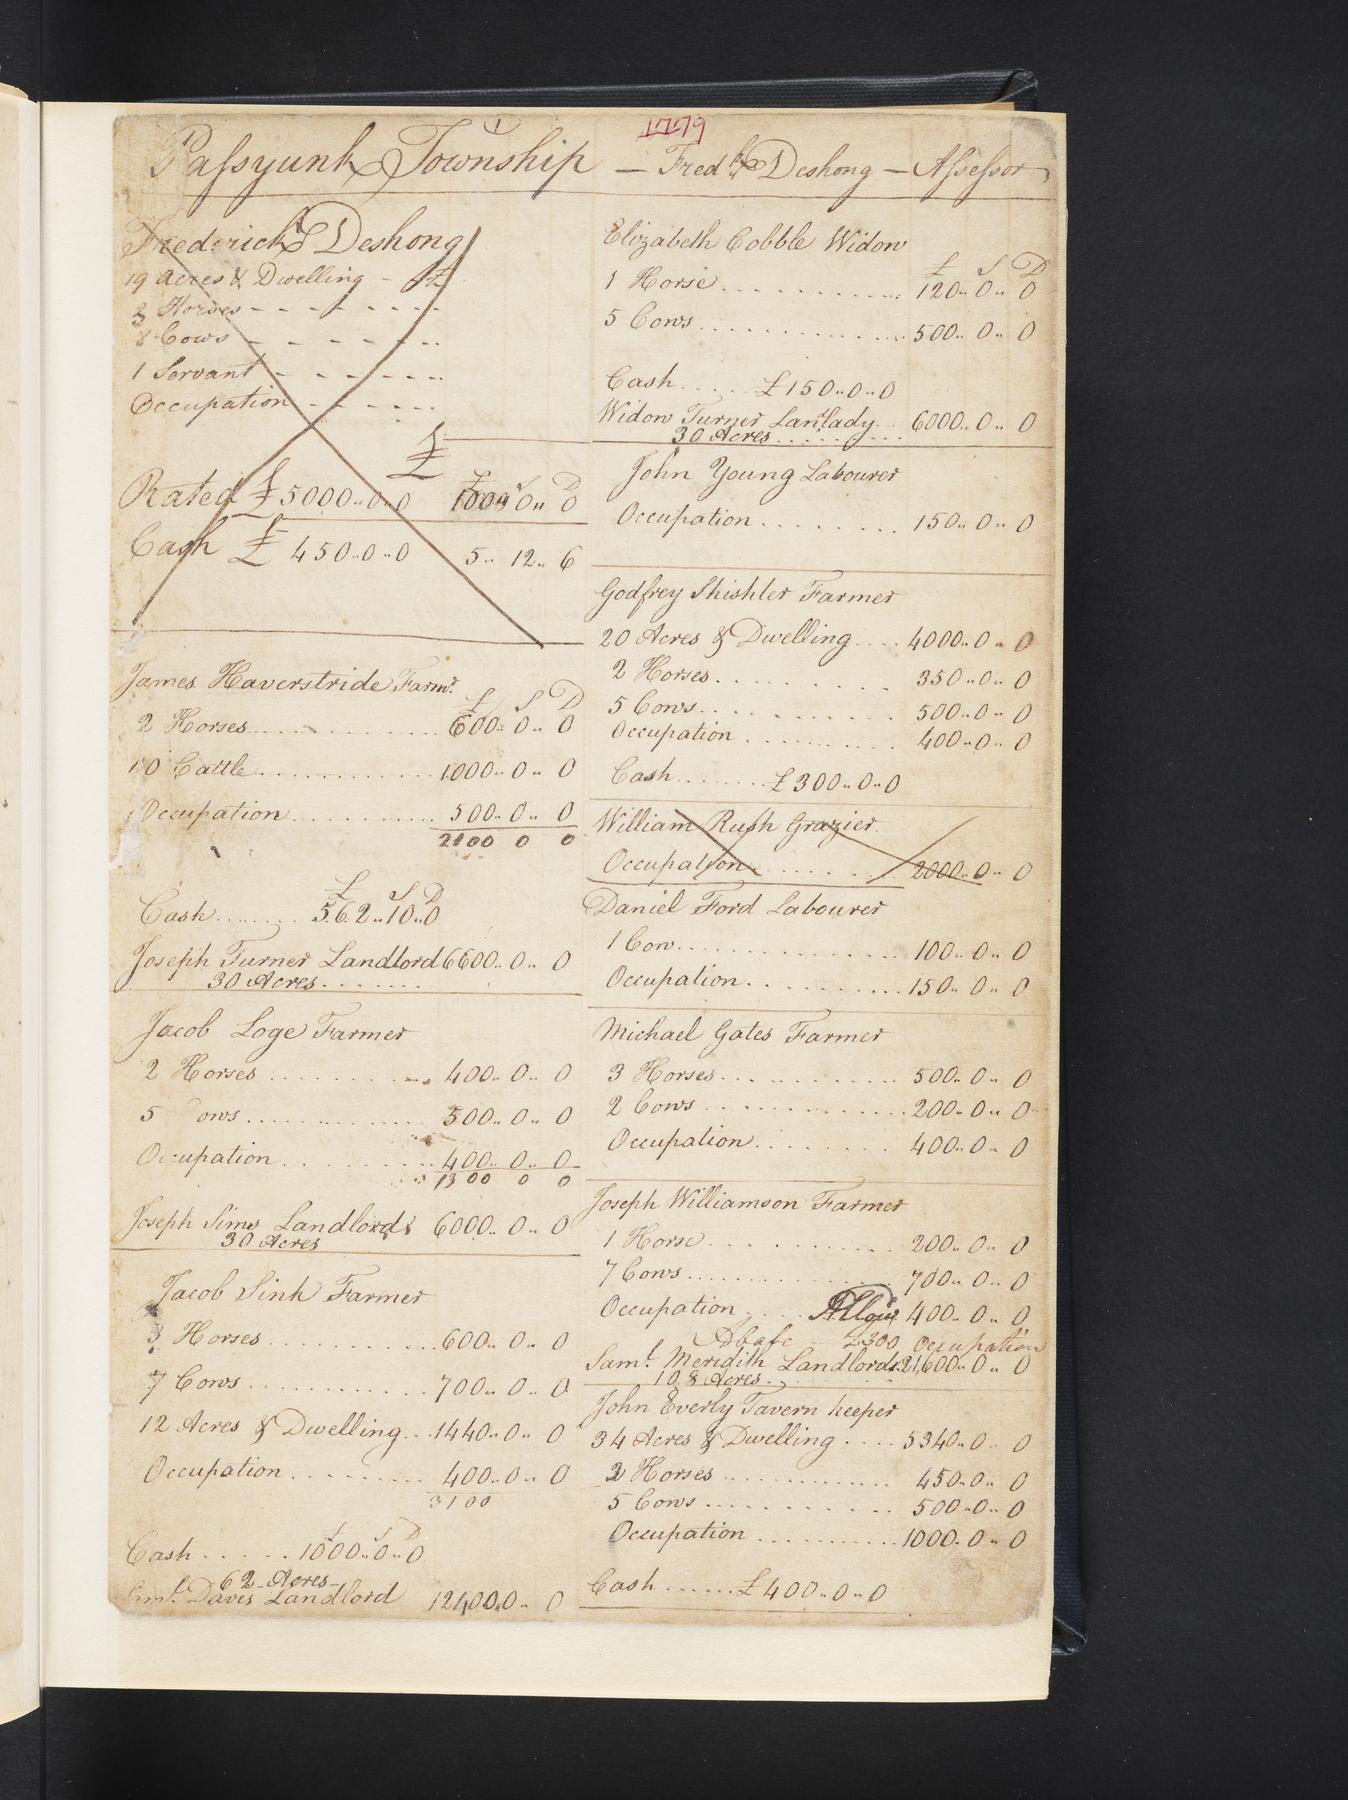 1
1779
Passyunk Township — Fredk Deshong — Assessor
Frederick Deshong
19 Acres & Dwelling - £
3 Horses - - - - - - -
8 Cows - - - - - - -
1 Servant - - - - - - -
Occupation - - - - - -
£
£ S D
Rated £ 5000..0..0 1000 0.. 0
Cash £ 450..0..0 5.. 12.. 6
James Haverstride Farmr.
£ S D
2 Horses ............ 600.. 0.. 0
10 Cattle ............ 1000.. 0.. 0
Occupation ............ 500.. 0.. 0
2100 0 0
£ S D
Cash ........ 562..10..0
Joseph Turner Landlord 6600.. 0.. 0
30 Acres .......
Jacob Loge Farmer
2 Horses ............ 400.. 0.. 0
5 ows ............ 500.. 0.. 0
Occupation ............ 400.. 0.. 0
1300 0 0
Joseph Sims Landlord 6000.. 0.. 0
30 Acres
Jacob Sink Farmer
3 Horses ............ 600.. 0.. 0
7 Cows ............ 700.. 0.. 0
12 Acres & Dwelling ... 1440.. 0.. 0
Occupation ............ 400.. 0.. 0
3100
£ S D
Cash ...... 1000..0..0
62 Acres
Davis Landlord 12400..0.. 0
Elizabeth Cobble Widow
£ S D
1 Horse ............ 120.. 0.. 0
5 Cows ............ 500.. 0.. 0
Cash ...... £150..0..0
Widow Turner Lanlady ... 6000.. 0.. 0
30 Acres ........
John Young Labourer
Occupation ........ 150.. 0.. 0
Godfrey Shishler Farmer
20 Acres & Dwelling .... 4000.. 0.. 0
2 Horses ............ 350.. 0.. 0
5 Cows ............ 500.. 0.. 0
Occupation ............ 400.. 0.. 0
Cash ........ £300..0..0
William Rush Grazier
Occupation ............ 2000.. 0.. 0
Daniel Ford Labourer
1 Cow ............ 100.. 0.. 0
Occupation ............ 150.. 0.. 0
Michael Gates Farmer
3 Horses ............ 500.. 0.. 0
2 Cows ............ 200.. 0.. 0
Occupation ............ 400.. 0.. 0
Joseph Williamson Farmer
1 Horse ............ 200.. 0.. 0
7 Cows ............ 700.. 0.. 0
Occupation .... 400.. 0.. 0
Abate £300 Occupation
Saml. Meridith Landlord 21,600.. 0.. 0
108 Acres ........
John Everly Tavern keeper
34 Acres & Dwelling .... 5340.. 0.. 0
2 Horses ............ 450.. 0.. 0
5 Cows ............ 500.. 0.. 0
Occupation ............ 1000.. 0.. 0
Cash ...... £400..0..0